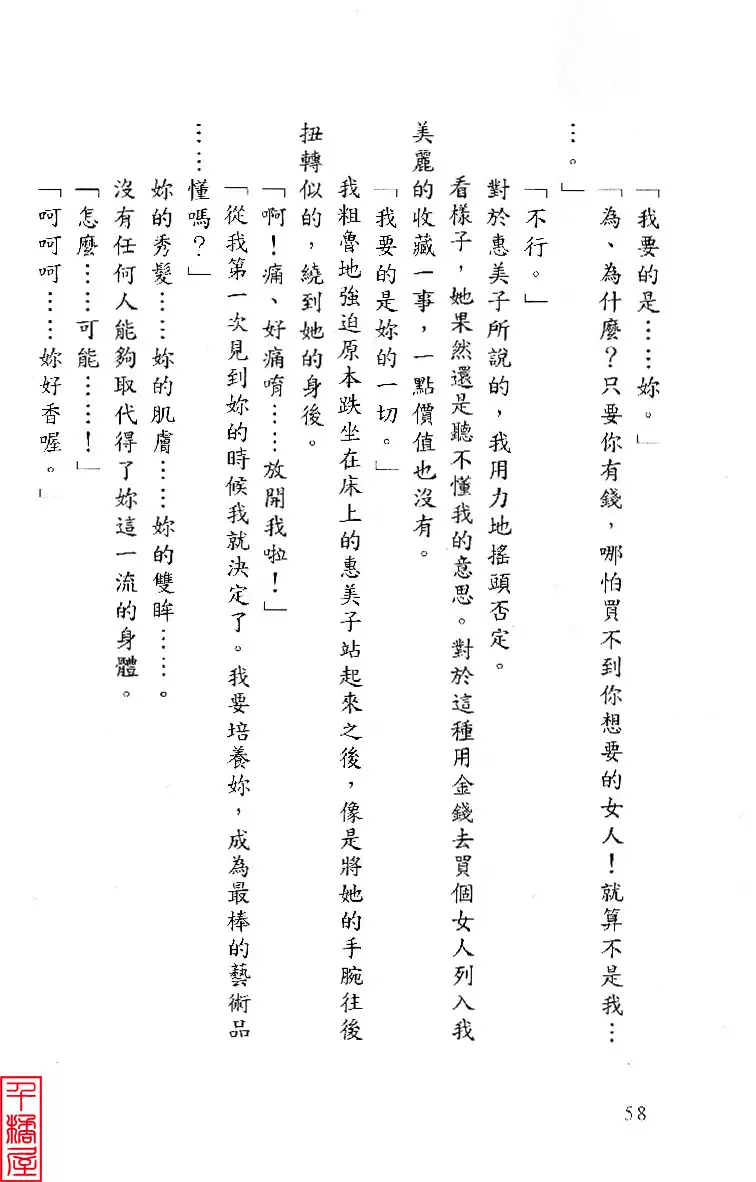 「我要的是……妳。」
「為、為什麼？只要你有錢，哪怕買不到你想要的女人！就算不是我…
…。」
「不行。」
對於惠美子所說的，我用力地搖頭否定。
看樣子，她果然還是聽不懂我的意思。對於這種用金錢去買個女人列入我
美麗的收藏一事，一點價值也沒有。
「我要的是妳的一切。」
我粗魯地強迫原本跌坐在床上的惠美子站起來之後，像是將她的手腕往後
扭轉似的，繞到她的身後。
「啊！痛、好痛唷……放開我啦！」
「從我第一次見到妳的時候我就決定了。我要培養妳，成為最棒的藝術品
……懂嗎？」
妳的秀髮……妳的肌膚……妳的雙眸……。
沒有任何人能夠取代得了妳這一流的身體。
「怎麼……可能……！」
「呵呵呵……妳好香喔。」
58
千橘屋